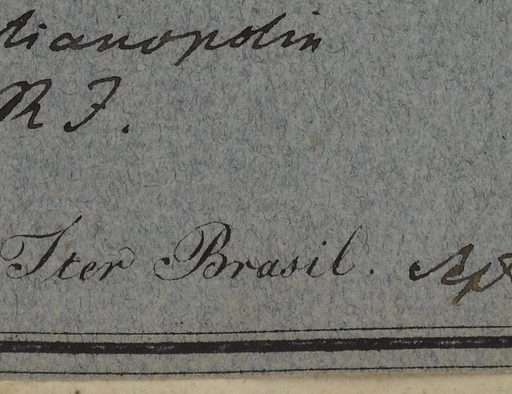 tianopolin
R J.
Iter Brasil.